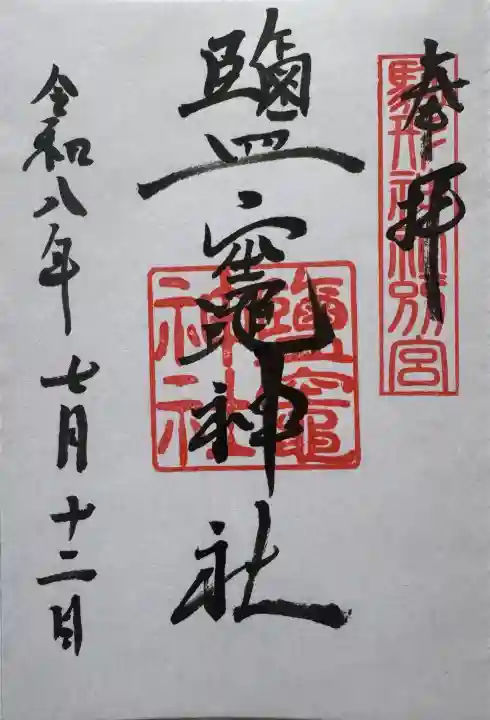 奉拝
駒形神社別宮
鹽竈神社
鹽竈神社
令和八年七月十二日